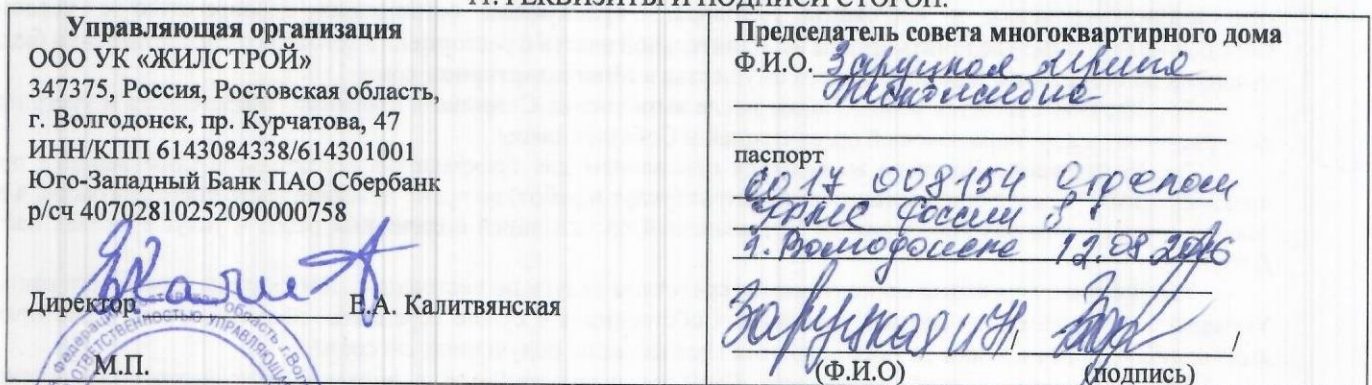 11. РЕКВИЗИТЫ И ПОДПИСИ СТОРОН:
Управляющая организация
ООО УК «ЖИЛСТРОЙ»
347375, Россия, Ростовская область,
г. Волгодонск, пр. Курчатова, 47
ИНН/КПП 6143084338/614301001
Юго-Западный Банк ПАО Сбербанк
р/сч 40702810252090000758
Директор Е.А. Калитвянская
М.П.
Председатель совета многоквартирного дома
Ф.И.О. Заруцкая Ирина
паспорт
6017 008154 Отделом
УФМС России в
г. Волгодонске 12.08.2016
Заруцкая И.Н.
(Ф.И.О) (подпись)